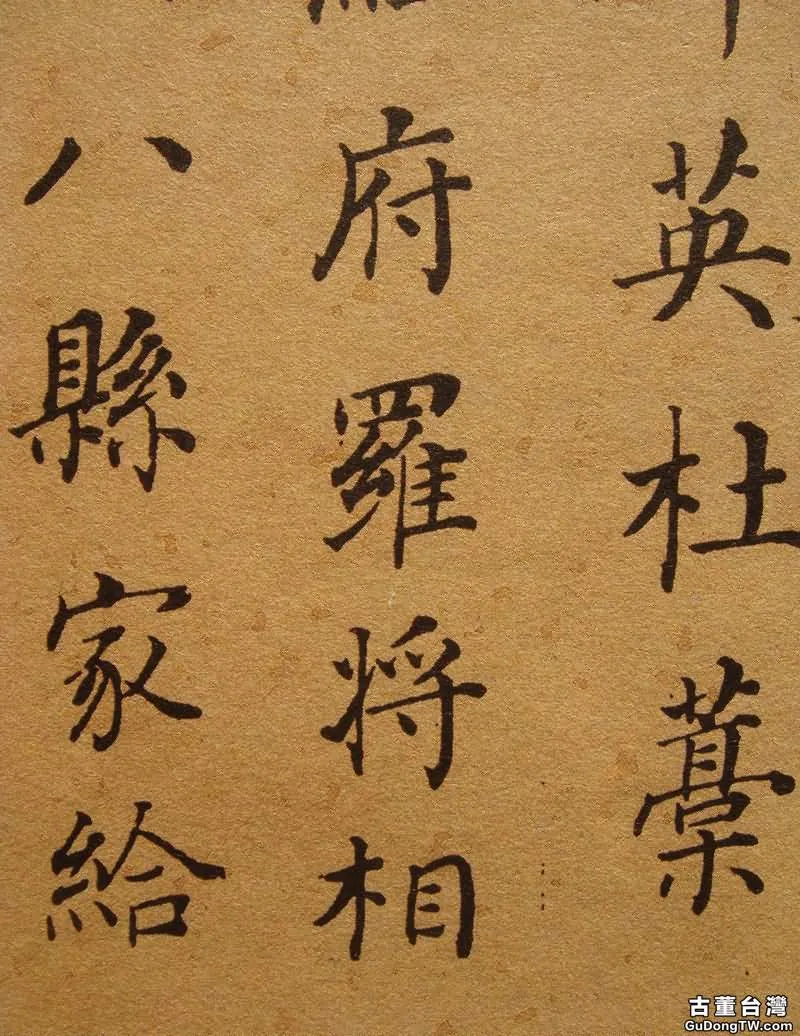 英杜藁
府羅将相
八縣家給
古董台灣
GuDongTW.com